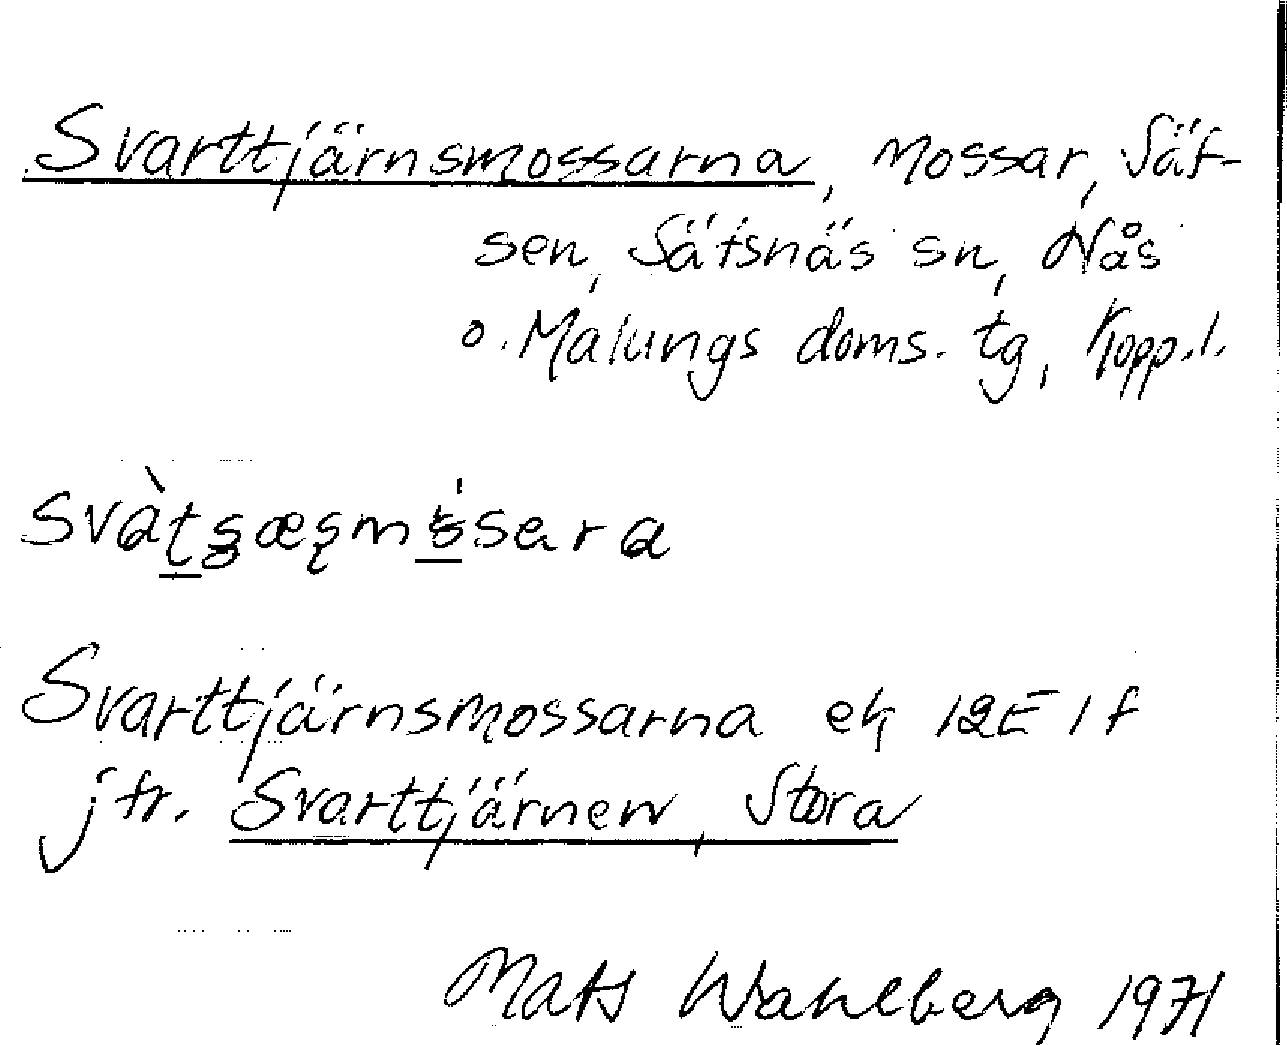 Svarttjärnsmossarna, mossar, Säf-
sen, Säfsnäs sn, Nås
o. Malungs doms. tg, Kopp.l.
Svarttjärnsmossarna ek 12E 1f
jfr. Svarttjärnen, Stora
Mats Wahlberg 1971